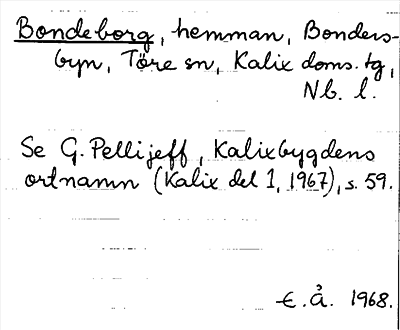 Bondeborg, hemman, Bonders-
byn, Töre sn, Kalix doms. tg,
Nb. l.
Se G. Pellijeff, Kalixbygdens
ortnamn (Kalix del 1, 1967), s. 59.
E. Å. 1968.